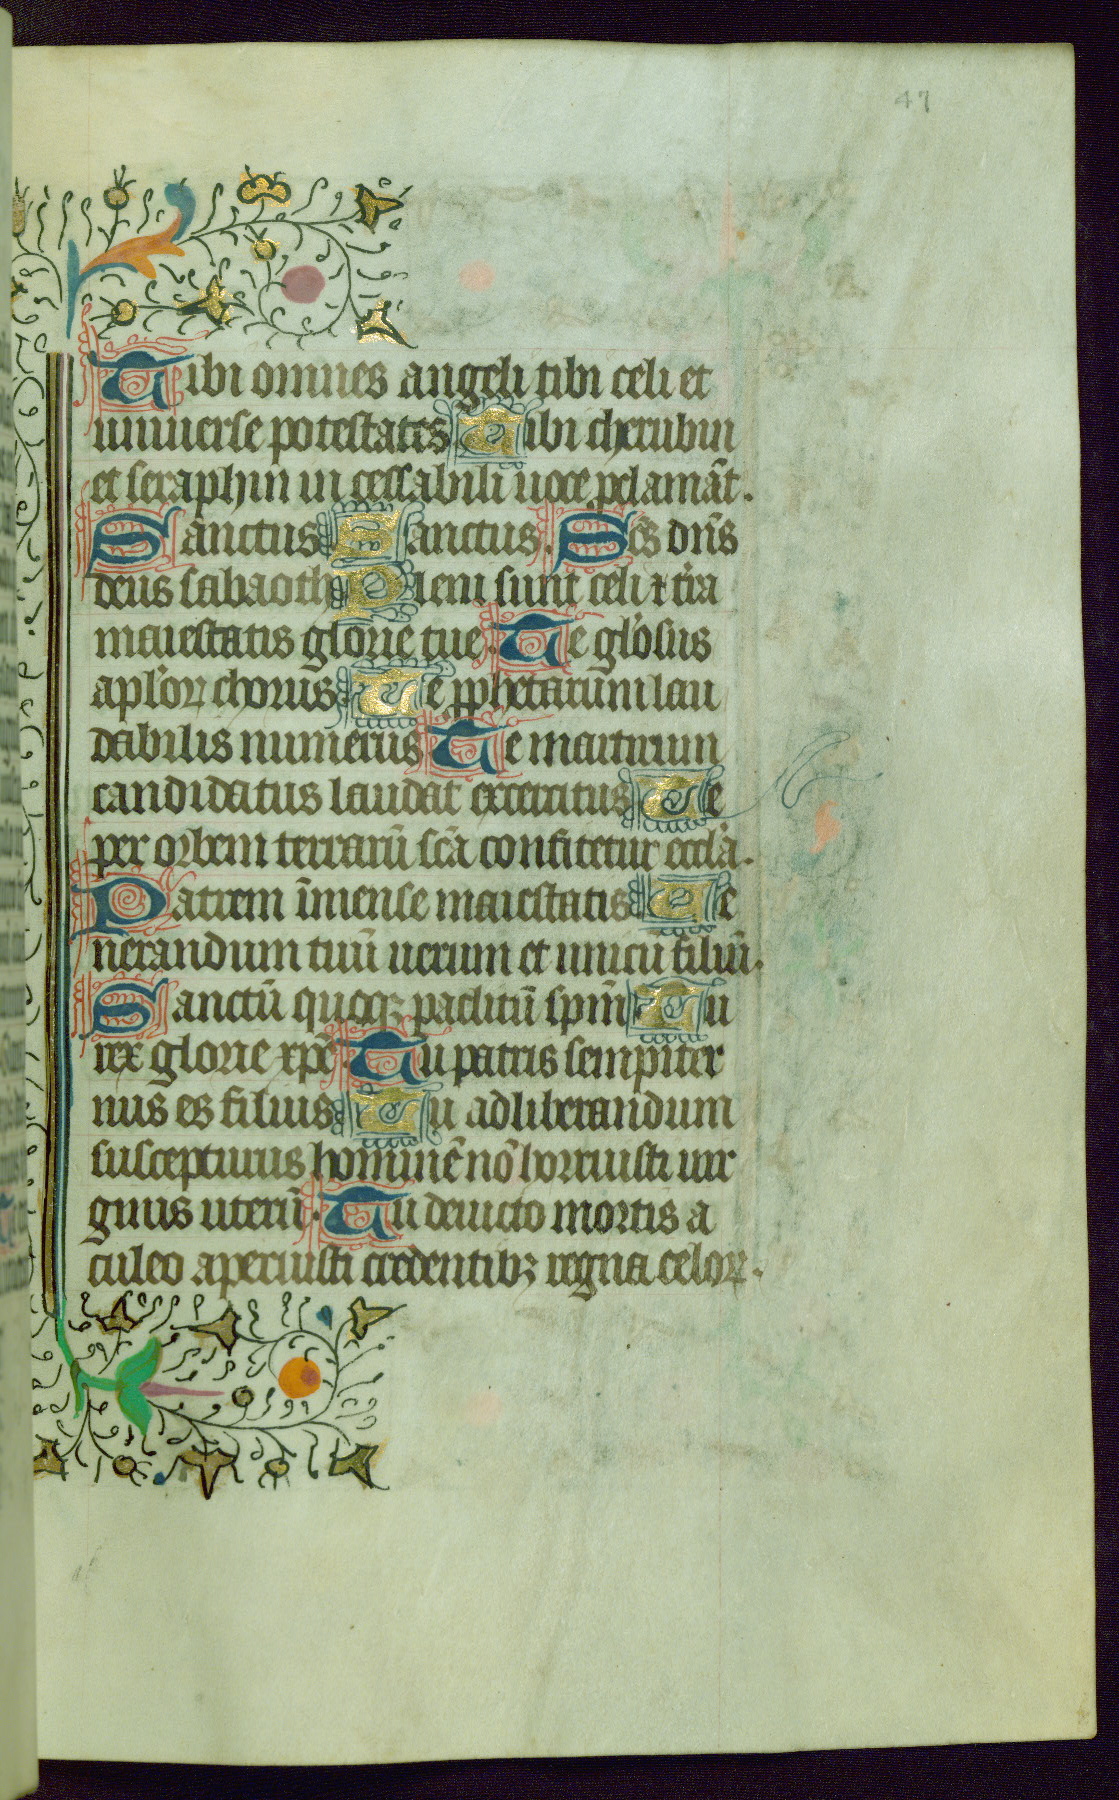 47
Tibi omnes angeli tibi celi et
uniuerse potestates Tibi cherubin
et seraphin in cessabili uoce ꝓclamāt.
Sanctus Sanctus. Sc̄s dn̄s
deus sabaoth Pleni sunt celi ⁊ t'ra
maiestatis glorie tue. Te gl'osus
apl'oꝝ chorus Te ꝓphetarum lau
dabilis numerus Te martirum
candidatus laudat exercitus Te
per orbem terrarū sc̄a confitetur eccl'a.
Patrem īmense maiestatis Ue
nerandum tuū uerum et unicū filiū.
Sanctū quoqꝫ paclitū spm̄ Tu
rex glorie xp̄e. Tu patris sempiter
nus es filius Tu ad liberandum
suscepturus hominē nō horruisti uir
ginis uterū. Tu deuicto mortis a
culeo aperuisti credentibꝫ regna celoꝝ.